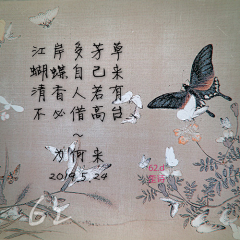 江岸多芳草
蝴蝶自己来
清香人若有
不必借高台
~
为何来
2019.5.24